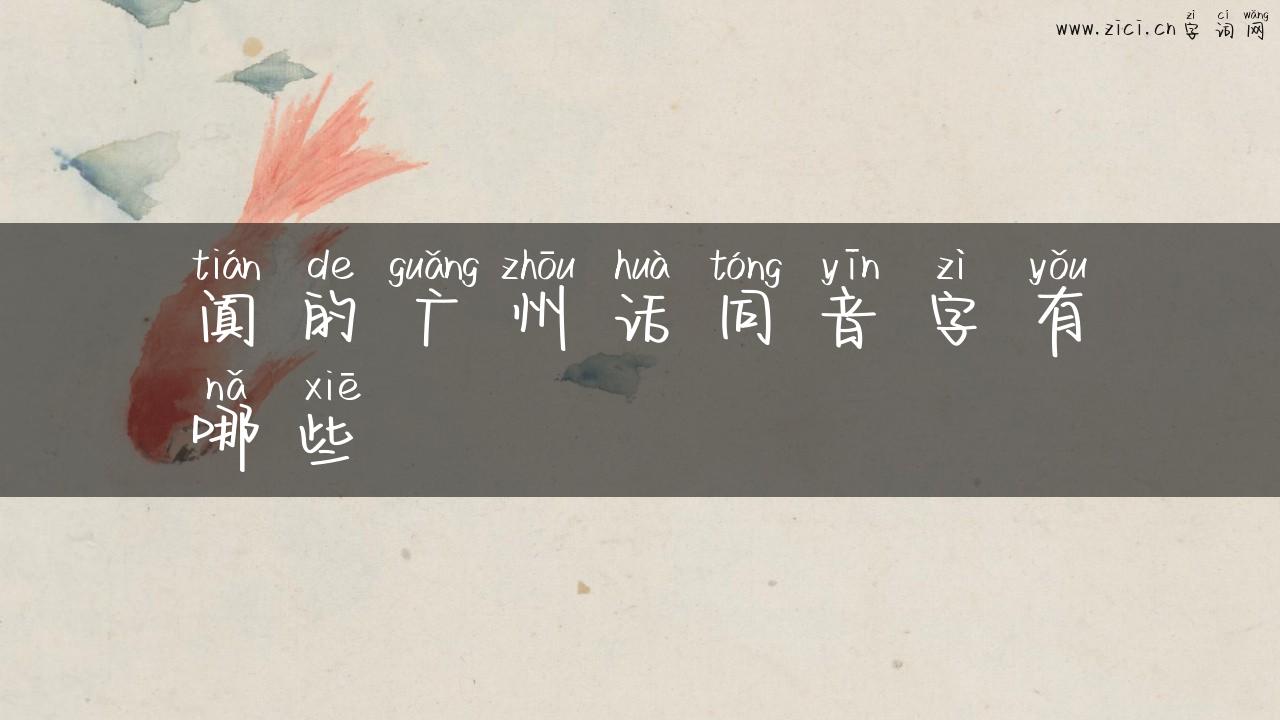 www.zici.cn zì cí wǎng
字词网
tián de guǎng zhōu huà tóng yīn zì yǒu
阗的广州话同音字有
nǎ xiē
哪些